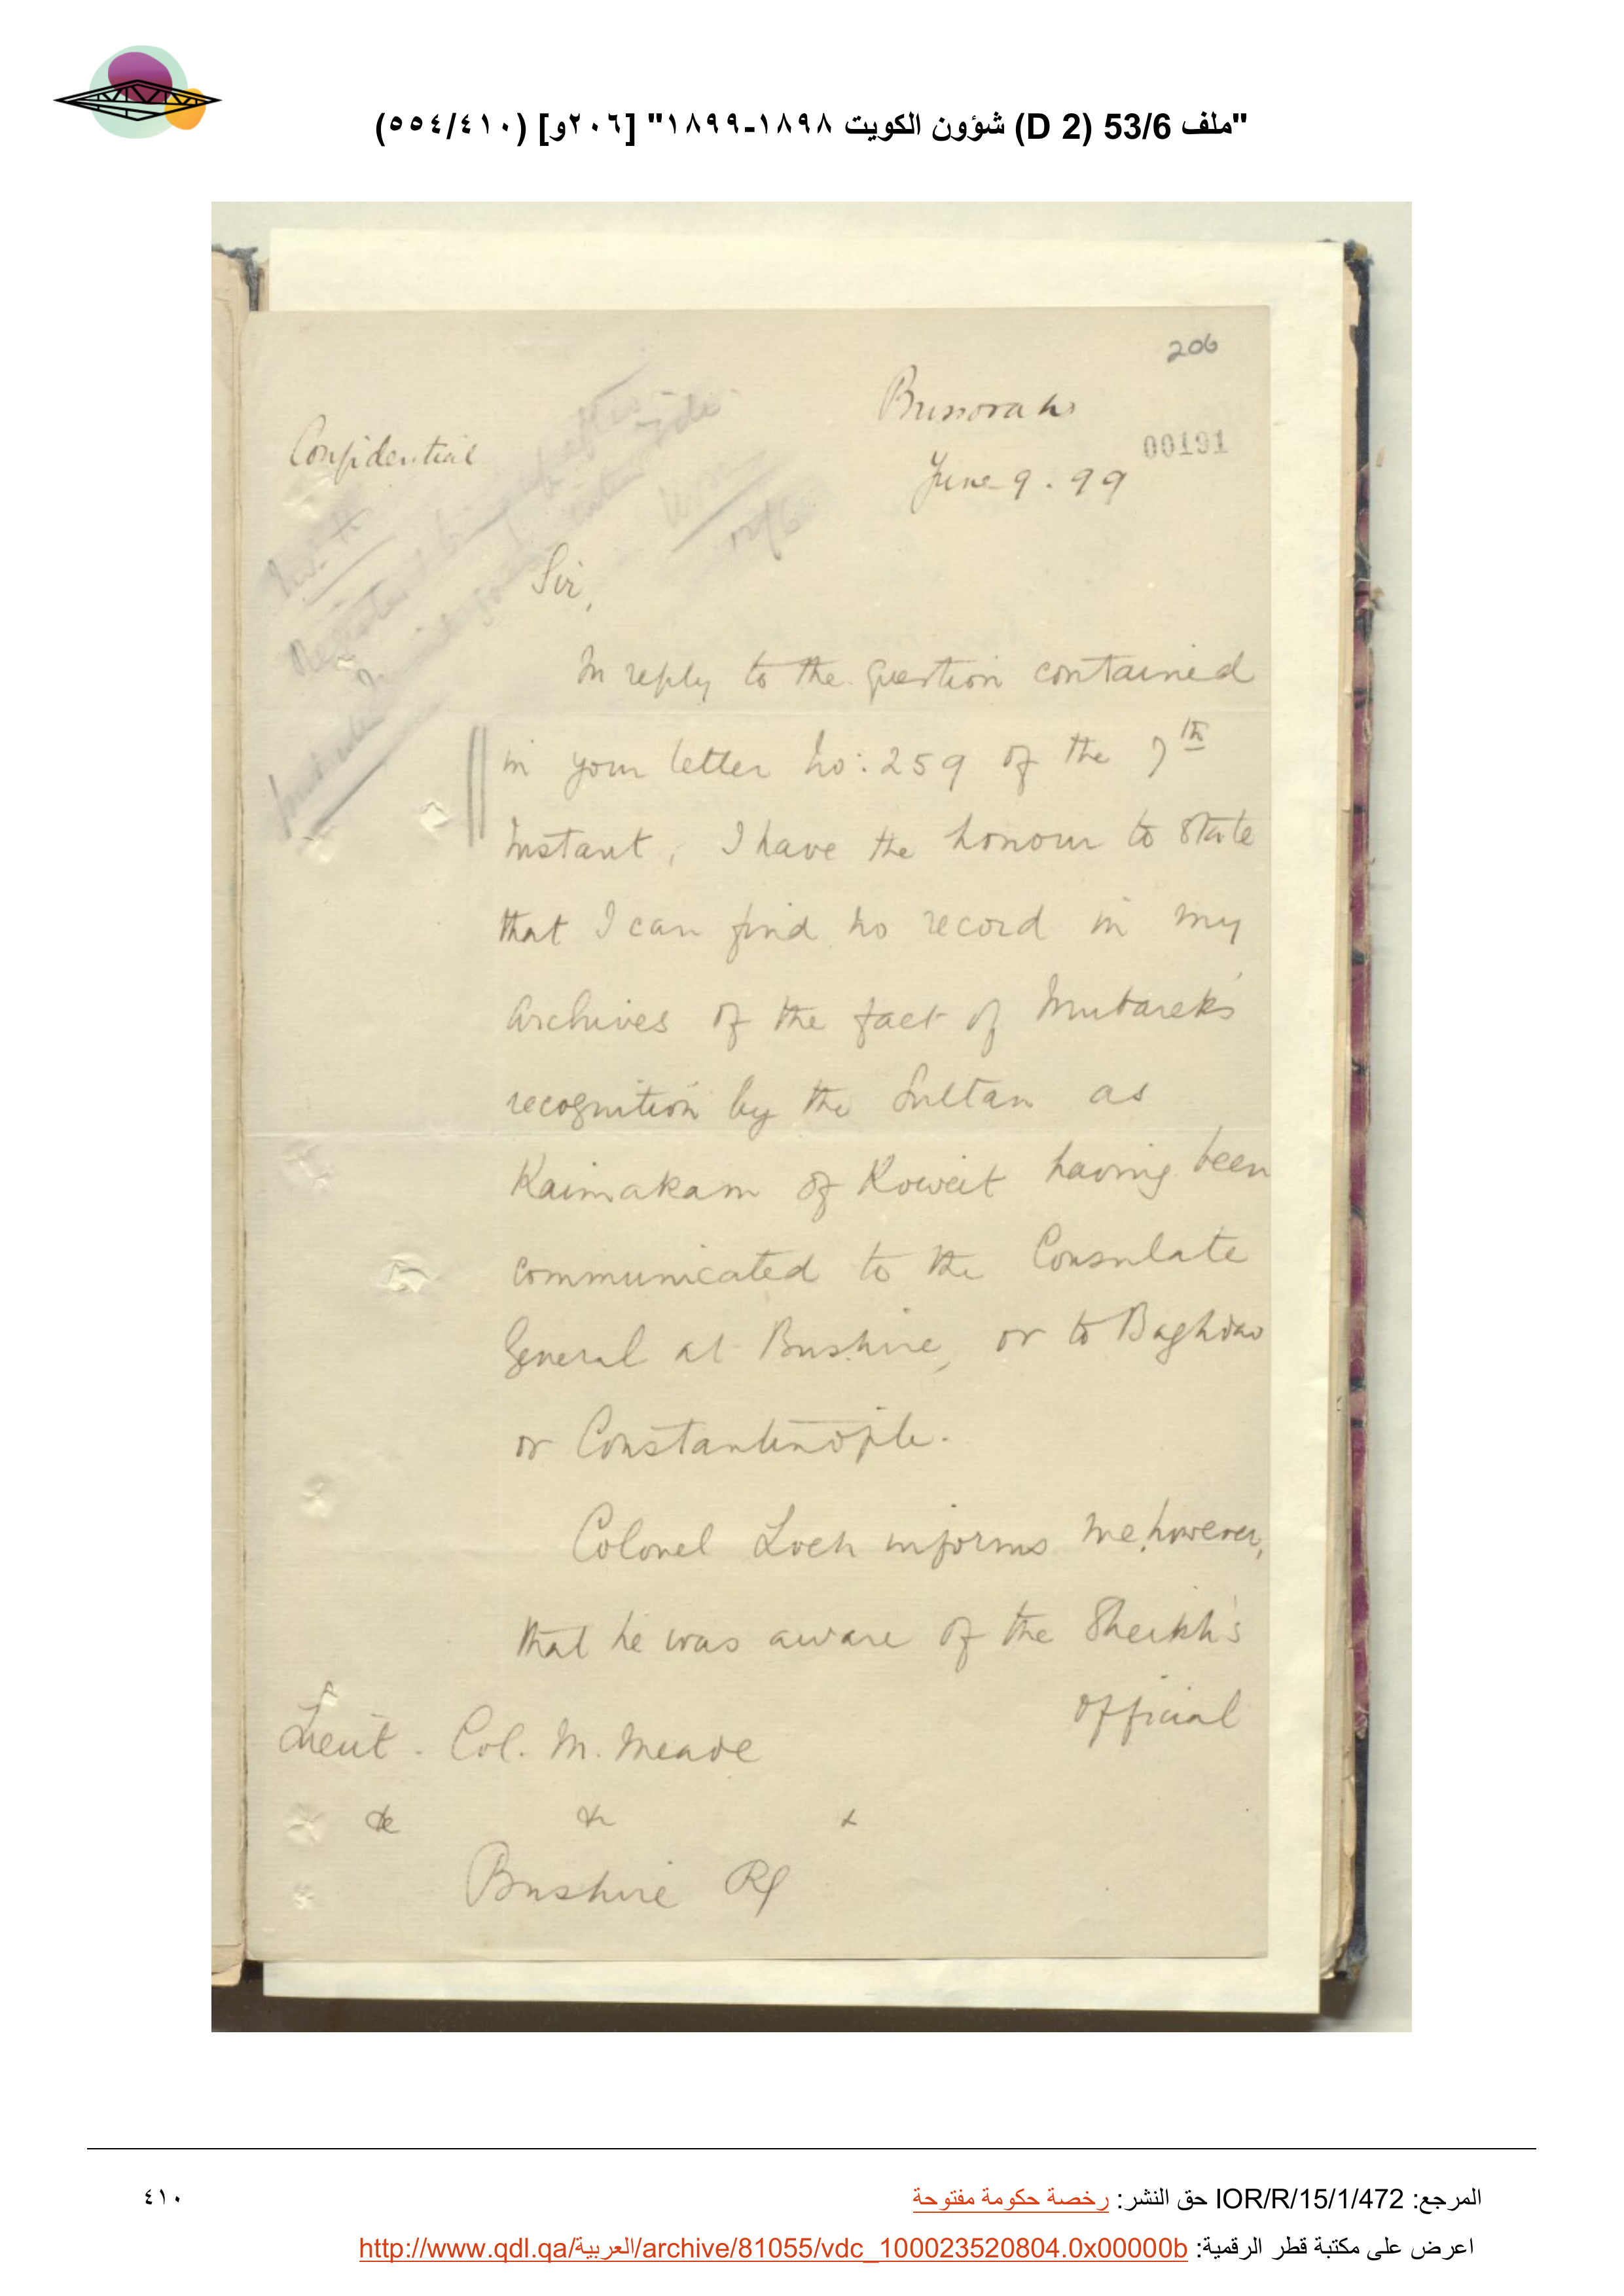 "ملف 53/6 (D 2) شؤون الكويت ١٨٩٨-١٨٩٩" [٢٠٦و] (٥٥٤/٤١٠)
206
Bussorah
00191
Confidential
June 9. 99
Sir,
In reply to the question contained
in your letter No: 259 of the 7th
Instant, I have the honour to state
that I can find no record in my
Archives of the fact of Mubarek's
recognition by the Sultan as
Kaimakam of Koweit having been
communicated to the Consulate
General at Bushire, or to Baghdad
or Constantinople.
Colonel Loch informs me, however,
that he was aware of the Sheikh's
official
Lieut. Col. M. Meade
&c &c &
Bushire
المرجع: IOR/R/15/1/472 حق النشر: رخصة حكومة مفتوحة
٤١٠
اعرض على مكتبة قطر الرقمية: http://www.qdl.qa/العربية/archive/81055/vdc_100023520804.0x00000b